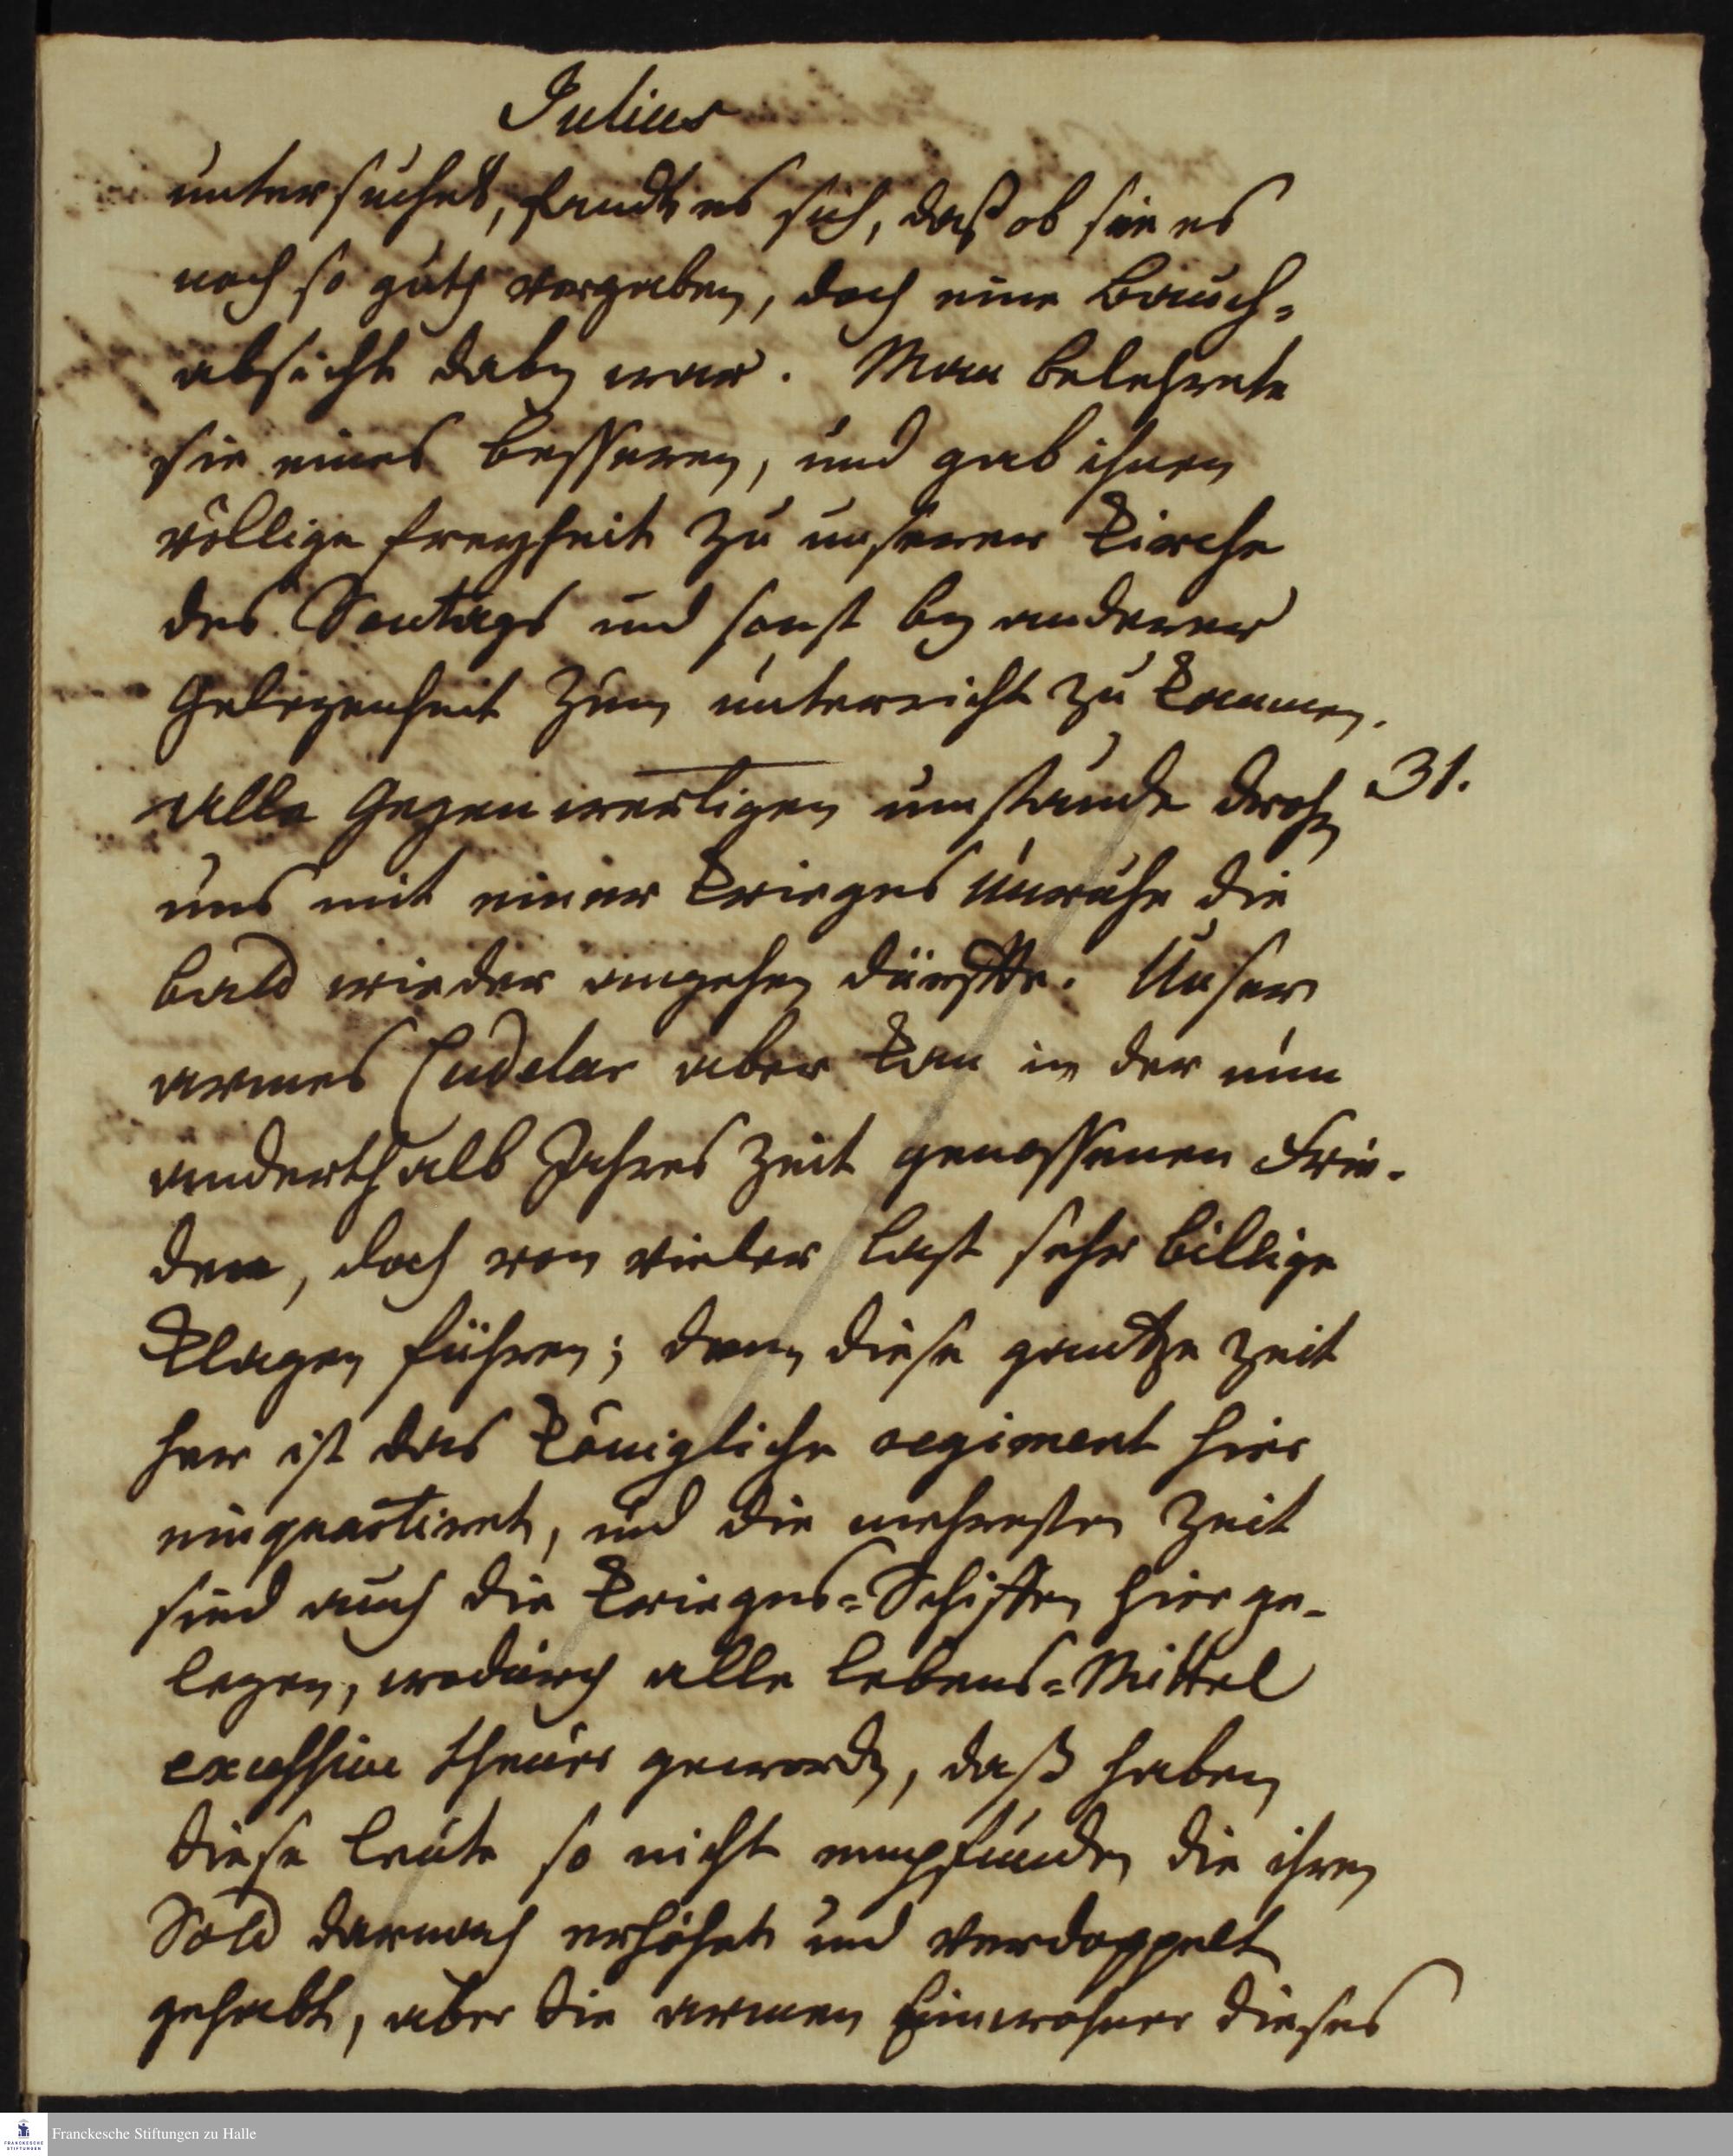 Julius
untersuchet, fandt es sich, daß ob sie es
noch so guth vorgaben, doch eine Bauch-
absicht daby war. Man belehrete
sie eines besseren, und gab ihnen
völlige freyheit zu unserer Kirche
des Sontags und sonst by anderer
Gelegenheit zum unterricht zu kommen.
Alle Gegenwertigen umstände drohen 31.
uns mit einer Krieges Unruhe die
bald wieder angehen dürffte. Unser
armes Cudelur aber kan in der nun
anderthalb Jahres Zeit genossenen Frie-
den, doch von vieler Last sehr billige
Klagen führen; denn diese gantze Zeit
her ist das Königliche regiment hier
einquartiret, und die mehresten Zeit
sind auch die Krieges-Schiffen hier ge-
legen, wodurch alle Lebens-Mittel
excessive theuer geworden, daß haben
diese Leute so nicht empfunden die ihren
Sold darnach erhöhet und verdoppelt
gehabt, aber die armen Einwohner dieses
Franckesche Stiftungen zu Halle
FRANCKESCHE
STIFTUNGEN